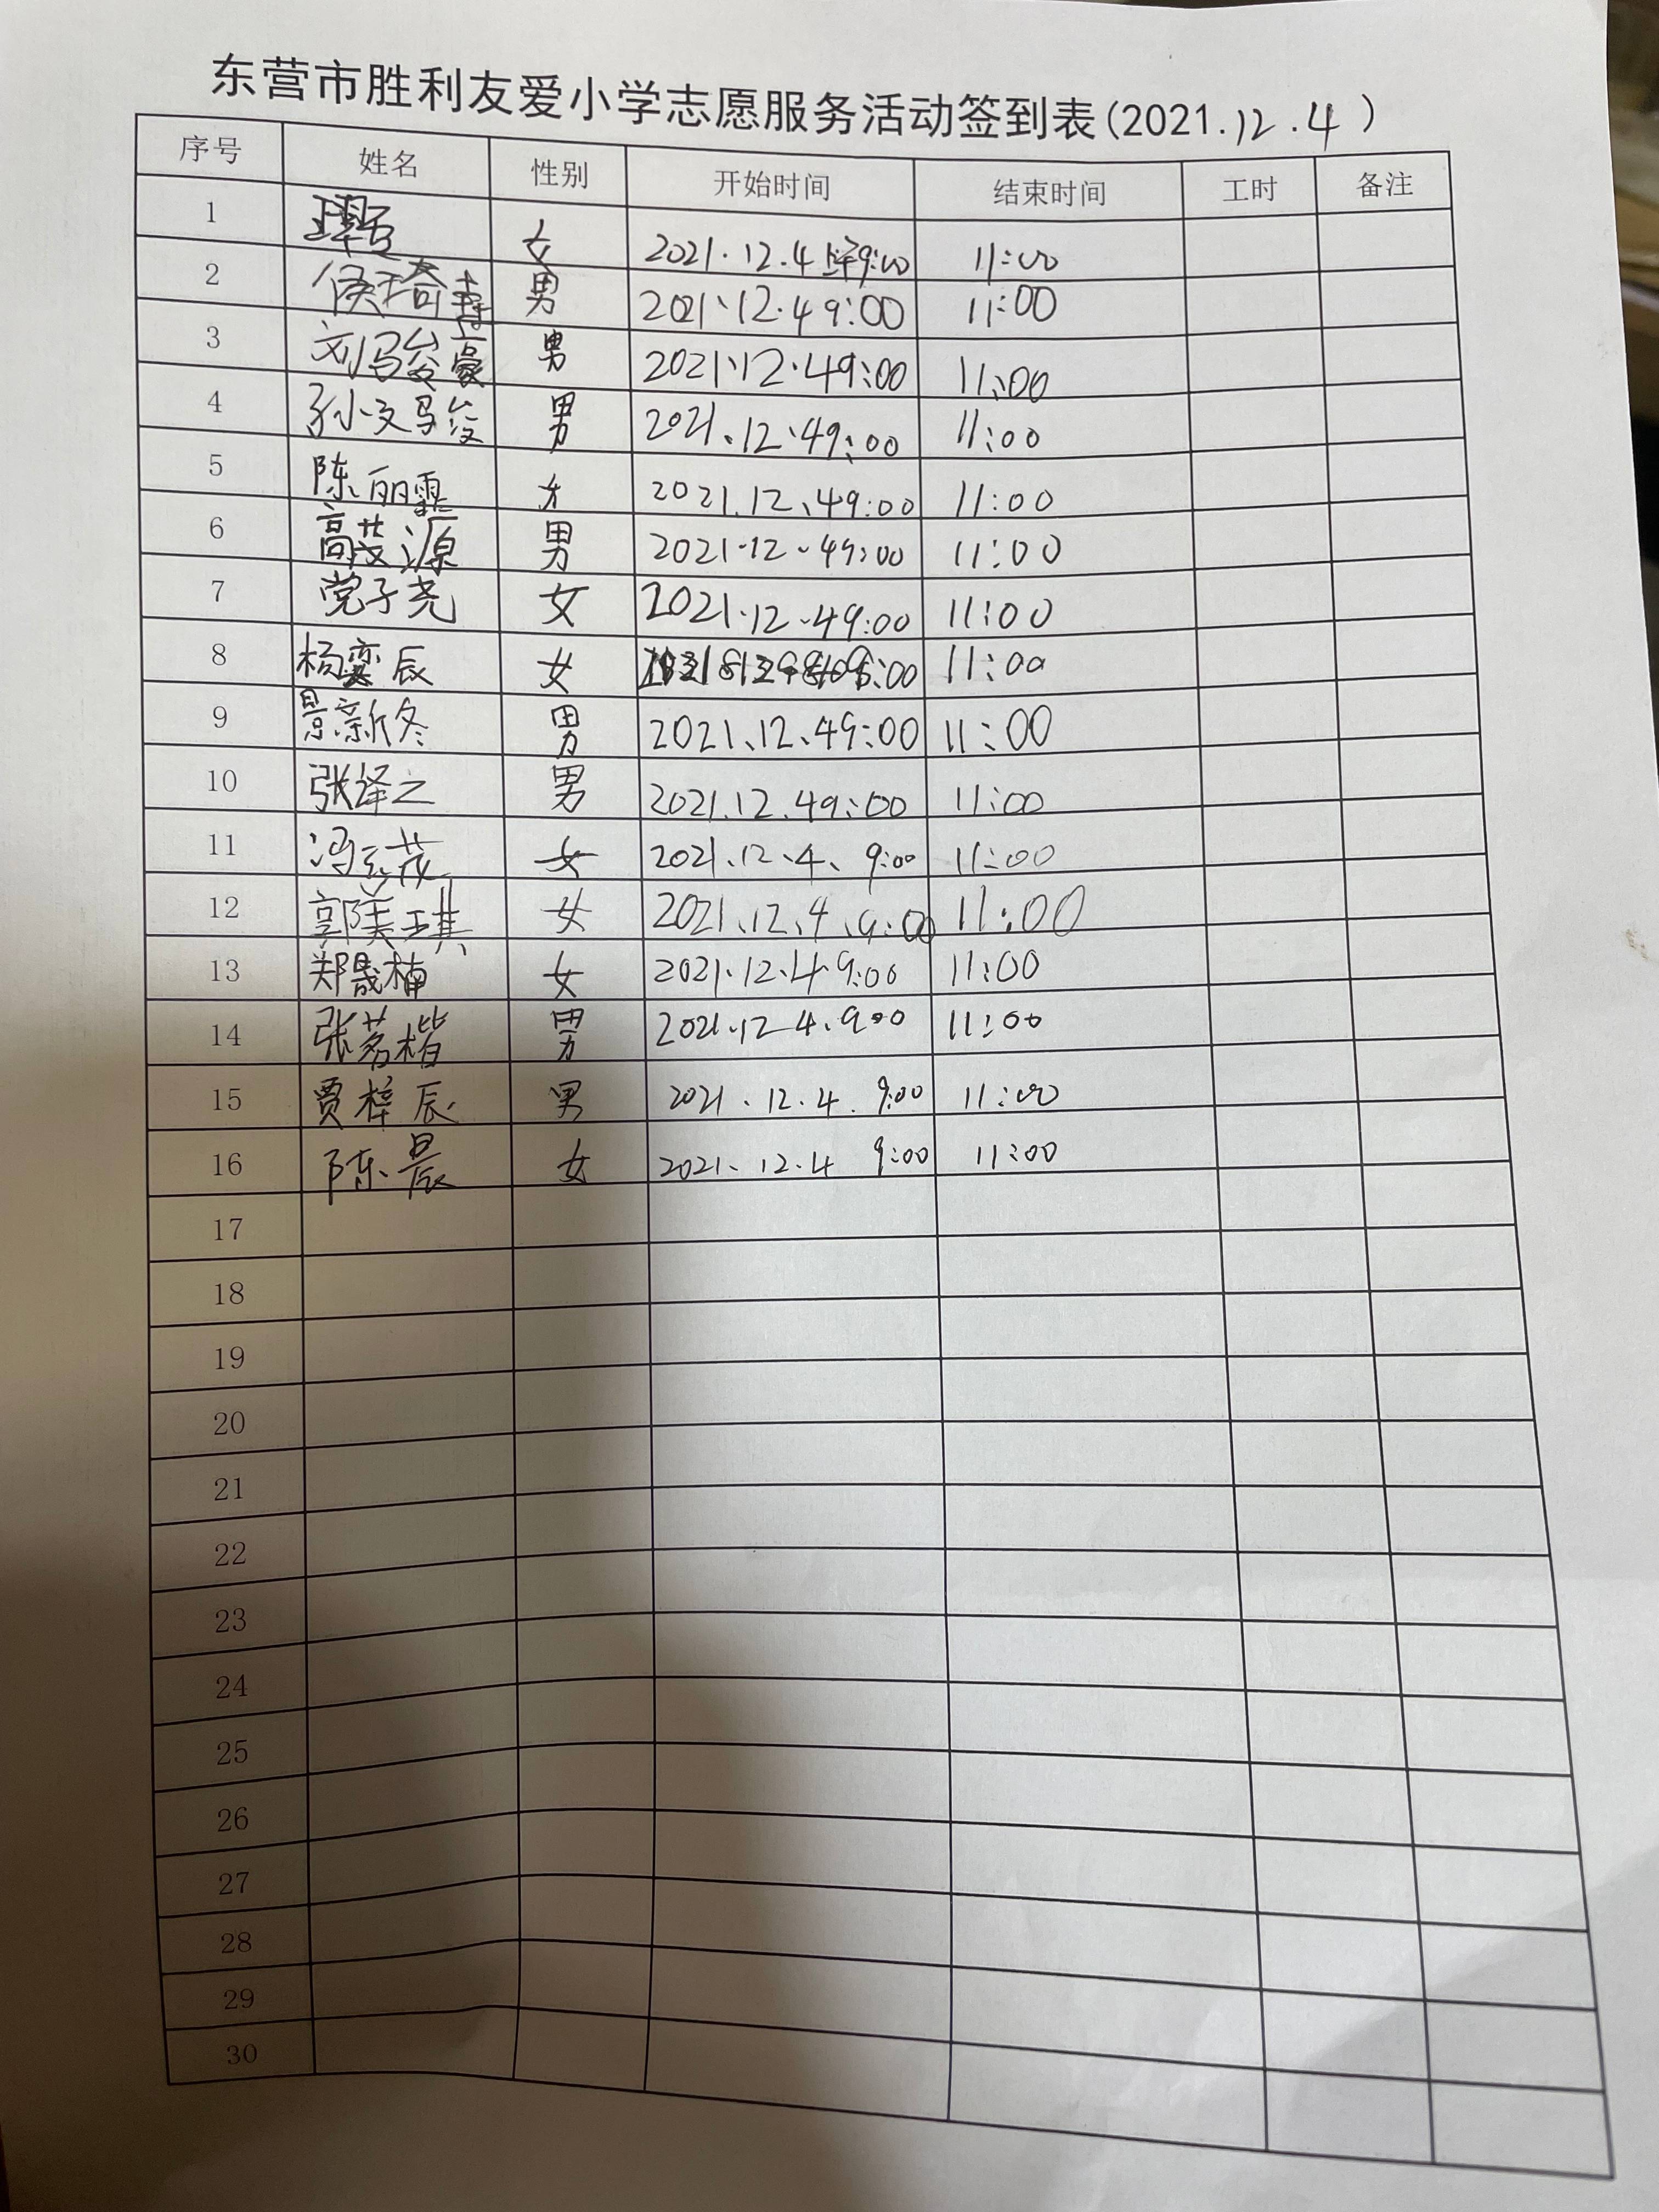 东营市胜利友爱小学志愿服务活动签到表(2021.12.4)
序号 姓名 性别 开始时间 结束时间 工时 备注
1 女 2021.12.4 上午9:00 11:00
2 侯琦 男 2021.12.4 9:00 11:00
3 刘骏豪 男 2021.12.4 9:00 11:00
4 孙文骏 男 2021.12.4 9:00 11:00
5 陈丽霏 女 2021.12、4 9:00 11:00
6 高茂源 男 2021.12.4 9:00 11:00
7 党子尧 女 2021.12.4 9:00 11:00
8 杨奕辰 女 :00 11:00
9 景新冬 男 2021、12、4 9:00 11:00
10 张译之 男 2021.12、4 9:00 11:00
11 冯 女 2021、12、4、9:00 11:00
12 郭美琪 女 2021、12、4、9:00 11:00
13 郑晟楠 女 2021.12.4.9:00 11:00
14 张茗楷 男 2021.12 4、9:00 11:00
15 贾梓辰 男 2021.12.4.9:00 11:00
16 陈晨 女 2021、12.4 9:00 11:00
17
18
19
20
21
22
23
24
25
26
27
28
29
30